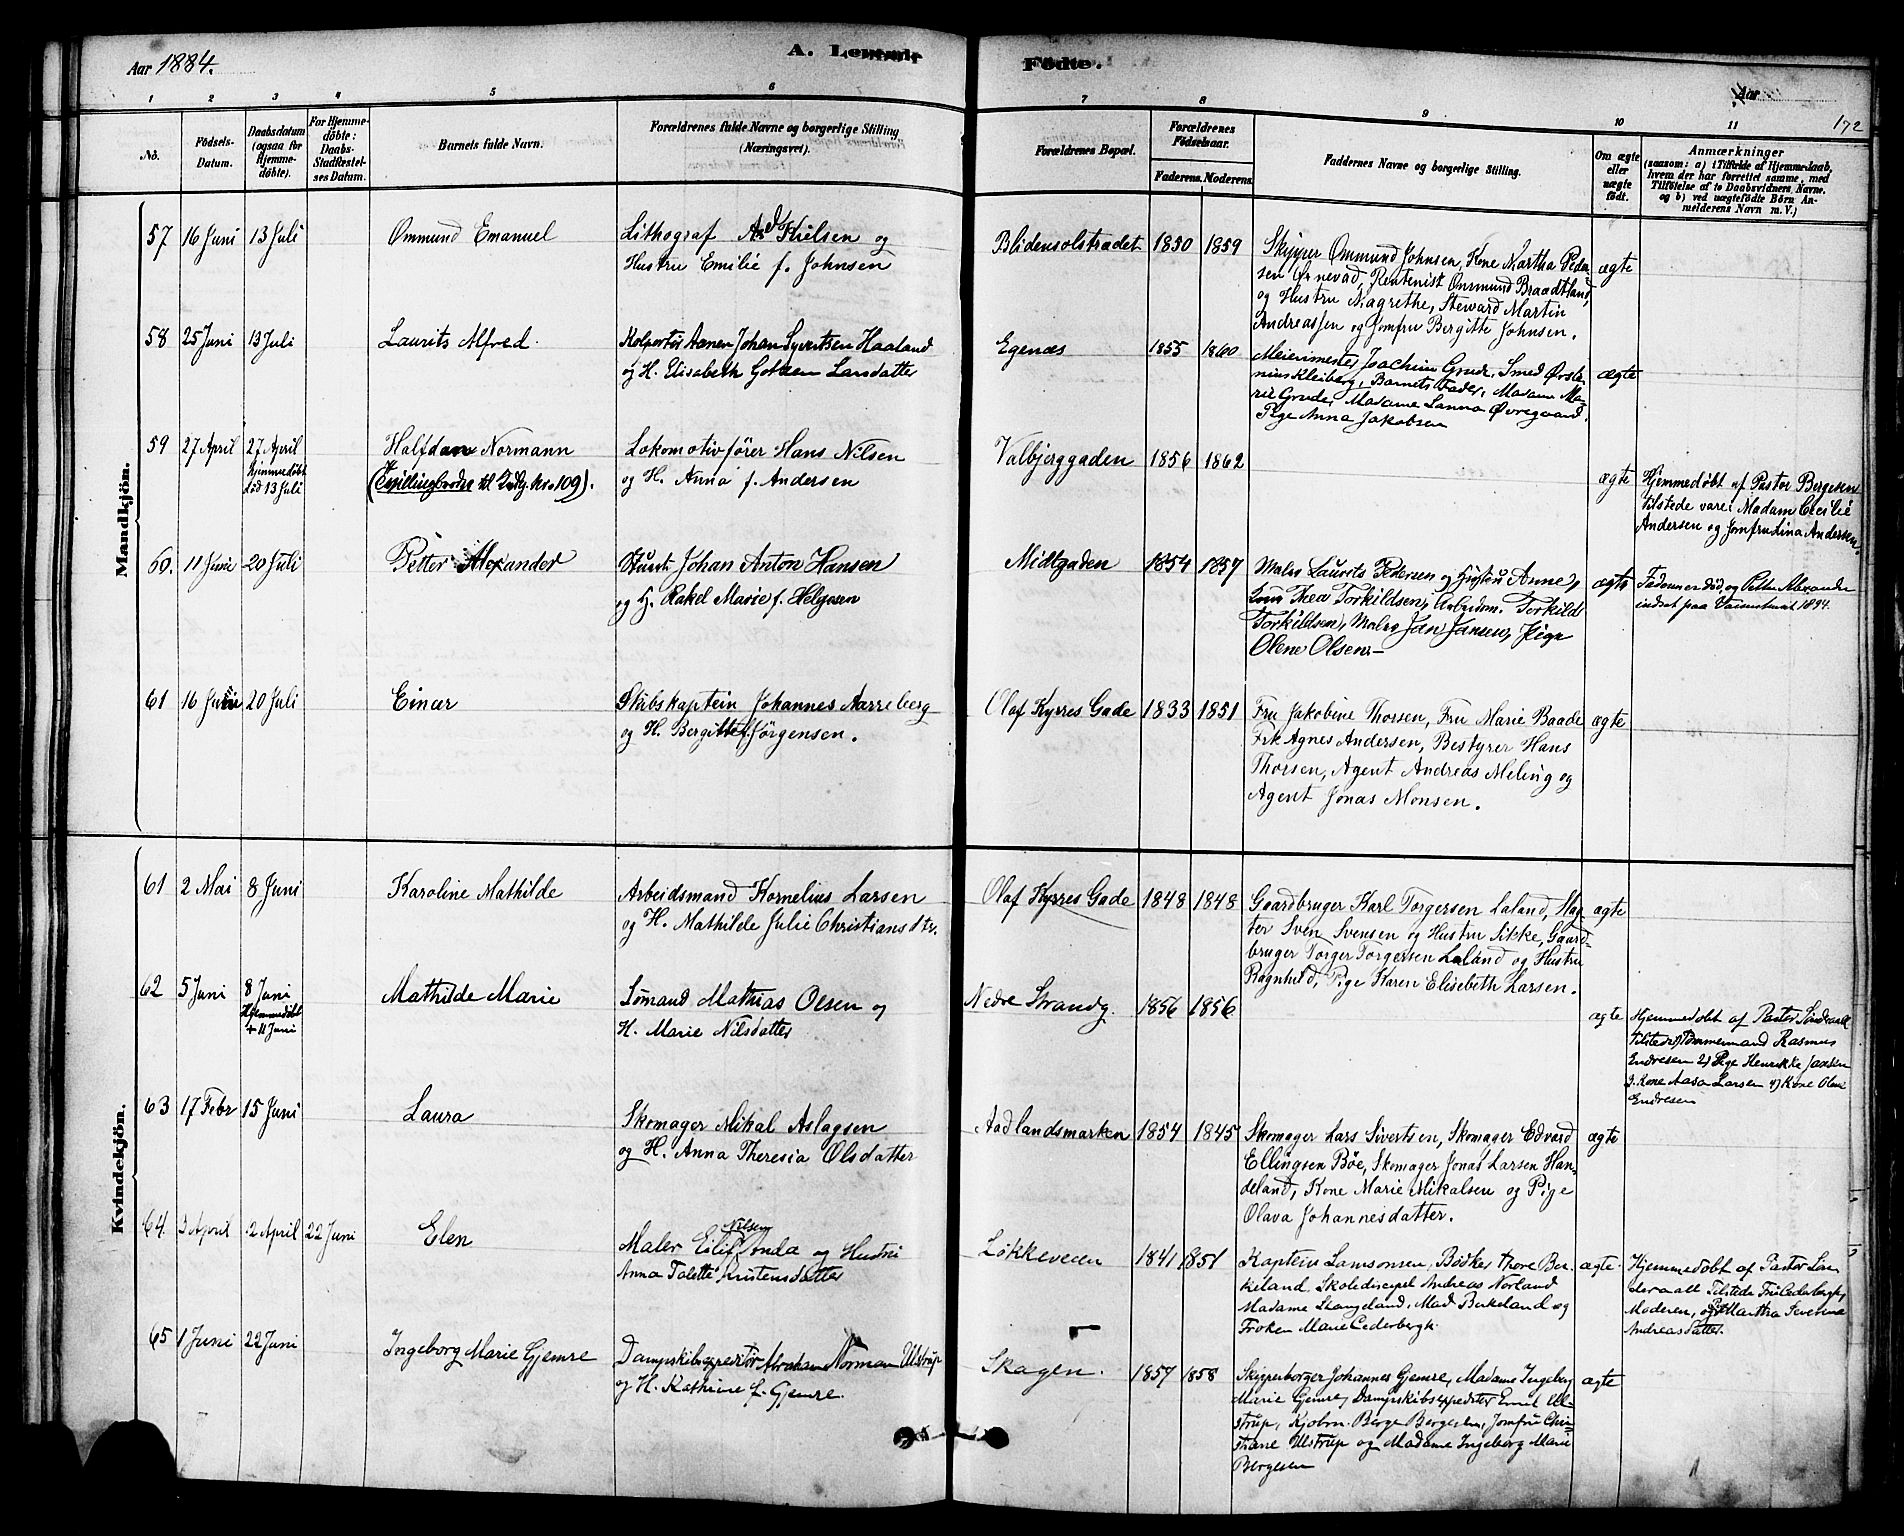 Aar 1884.
A. Levende
Fødte.
Aar
172
1 2 3 4 5 6 7 8 9 10 11
No.
Fødsels-
Datum.
Daabsdatum
(ogsaa for
Hjemme-
døbte).
For Hjemme-
døbte:
Daabs-
Stadfæstel-
ses Datum.
Barnets fulde Navn.
Forældrenes fulde Navne og borgerlige Stilling
(Næringsvei).
Forældrenes Bopæl.
Forældrenes
Fødselsaar.
Faderens. Moderens.
Faddernes Navne og borgerlige Stilling.
Om ægte
eller
uægte
født.
Anmærkninger
(saasom: a) i Tilfælde af Hjemmedaab,
hvem der har forrettet samme, med
Tilføielse af to Daabsvidners Navne,
og b) ved uægtefødte Børn An-
melderens Navn m. V.)
Mandkjön.
57 16 Juni 13 Juli
Ømmund Emanuel
Lithograf Kielsen og
Hustru Emilie f. Johnsen
Blidensolstrædet 1850 1859
Skipper Ømmund Johnsen, Kone Martha Peder-
sen Ørnevad, Rentenist Onsmund Braadtland
og Hustru Magrethe, Steward Martin
Andreassen og Jomfru Bergitte Johnsen.
ægte
58 25 Juni 13 Juli
Laurits Alfred.
Kolportør Aanen Johan Syvertsen Haaland
og H. Elisabeth Larsdatter
Egenæs 1855 1860
Meierimester Joachim Grude, Smed
Kleiberg, Barnets Fader, Madam Ma-
rie Grude, Madame Lanna Øvregaard.
Pige Anna Jakobsen
ægte
59 27 April 27 April
Hjemmedøbt
13 Juli
Halfdan Normann
(Tvillingbroder til No 109).
Lokomotivfører Hans Nilsen
og H. Anna f. Andersen
Valbjerggaden 1856 1862
ægte
Hjemmedøbt af Pastor Bergesen
tilstede vare: Madam Cecilie
Andersen og Jomfru Lina Andersen.
60. 11 Juni 20 Juli
Petter Alexander
Johan Anton Hansen
og H. Rakel Marie f. Helgesen
Midtgaden 1854 1857
Malw Laurits Pedersen og Hustru Anne,
Thea Torkildsen, Arbeidsm. Torkild
Torkildsen, Jan Jansen, Pige
Olene Olsen.-
ægte
Faderen er død, og Petter Alexander
indsat paa Vaisenhuset 1894.
61 16 Juni 20 Juli
Einar
Skibskaptein Johannes Aarreberg
og H. Bergitte f. Jørgensen.
Olaf Kyrres Gade 1833 1851
Fru Jakobine Thorsen, Fru Marie Baade
Frk Agnes Andersen, Bestyrer Hans
Thorsen, Agent Andreas Meling og
Agent Jonas Monsen.
ægte
Kvindekjön.
61 2 Mai 8 Juni
Karoline Mathilde
Arbeidsmand Kornelius Larsen
og H. Mathilde Julie Christiansdtr.
Olaf Kyrres Gade 1848 1848
Gaardbruger Karl Torgersen Laland, Slag-
ter Sven Svensen og Hustru Sikke, Gaard-
bruger Torger Torgersen Laland og Hustru
Ragnhild, Pige Karen Elisebeth Larsen.
ægte
62 5 Juni 8 Juni
Hjemmedøbt
+ 11 Juni
Mathilde Marie
Sømand Mathias Olsen og
H. Marie Nilsdatter
Nedre Strandg. 1856 1856
ægte
Hjemmedøbt af Pastor Sønderaall
tilstede 1) Tømmermand Rasmus
Endresen 2) Pige Henrikke
3. Kone Aasa Larsen 4) Kone
Endresen
63 17 Febr 15 Juni
Laura
Skomager Mikal Aslagsen
og H. Anna Theresia Olsdatter
Aadlandsmarken 1854 1845
Skomager Lars Sivertsen, Skomager Edvard
Ellingsen Bøe, Skomager Jonas Larsen Han-
deland, Kone Marie Mikalsen og Pige
Olava Johannesdatter.
ægte
64 3 April 2 April 22 Juni
Elen
Nilsen
Maler Eilif Onda og Hustru
Anna Talette Kristensdatter
Løkkeveien 1841 1851
Kaptein Lamsonsen, Bødker Thore Ber-
keland, Skoledisipel Andreas Norland
Madame Skangeland, Mad Birkeland og
Frøken Marie Cederbergh.
ægte.
Hjemmedøbt af Pastor Søn
deraall Tilstede Fru Cederbergh,
Moderen, og Martha Severine
Andreasdatter.
65 1 Juni 22 Juni
Ingeborg Marie Gjemre
Dampskibsexpeditør Abraham Norman Ulstrup
og H. Kathrine f. Gjemre.
Skagen. 1857 1858
Skipperborger Johannes Gjemre, Madame Ingeborg
Marie Gjemre, Dampskibsexpeditør Ul-
strup, Kjøbm. Børge Bergesen, Jomfru Chri-
stiane Ulstrup og Madame Ingeborg Marie
Bergesen
ægte